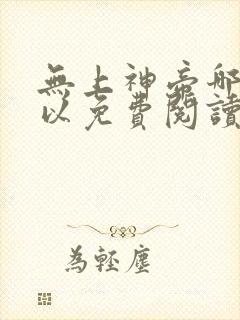 無上神帝哪
以免費閱讀
為輕塵